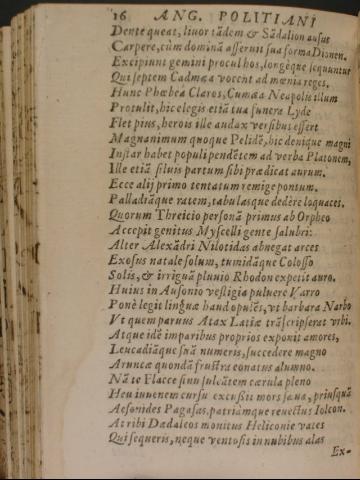 16 ANG. POLITIANI
Dente queat, livor tãdem & Sãdalion ausus
Carpere, cùm dominã asseruit sua forma Dionen.
Excipiunt gemini procul hos, longéque sequuntur
Qui septem Cadmæa vocent ad mœnia reges,
Hunc Phœbea Claros, Cumæa Neapolis illum
Protulit, hic elegis etiã tua funera Lyde
Flet pius, herois ille audax versibus effert
Magnanimum quoque Pelidẽ, hic denique magni
Instar habet populi pendẽtem ad verba Platonem,
Ille etiã siluis partum sibi prædicat aurum.
Ecce alij primo tentatum remige pontum.
Palladiãque ratem, tabulasque dedêre loquaces.
Quorum Threicio personã primus ab Orpheo
Accepit genitus Myscelli gente salubri:
Alter Alexãdri Nilotidas abnegat arces
Exosus natale solum, tumidãque Colosso
Solis, & irriguã pluuio Rhodon expetit auro.
Huius in Ausonio vestigia puluere Varro
Ponè legit linguæ haud opulẽs, vt barbara Narbo
Vt quem paruus Atax Latiæ trãscripserat vrbi.
Atque idẽ imparibus proprios exponit amores,
Leucadiãque suã numeris, succedere magno
Aruncæ quondã frustra conatus alumno.
Nã te Flacce sinu sulcãtem cærula pleno
Heu iuuenem cursu excussit mors sæua, priusquã
Aesonides Pagasas, patriamque reuectus Iolcon.
At tibi Dædaleos monitus Heliconie vates
Qui sequeris, neque ventosis in nubibus alas
Ex-